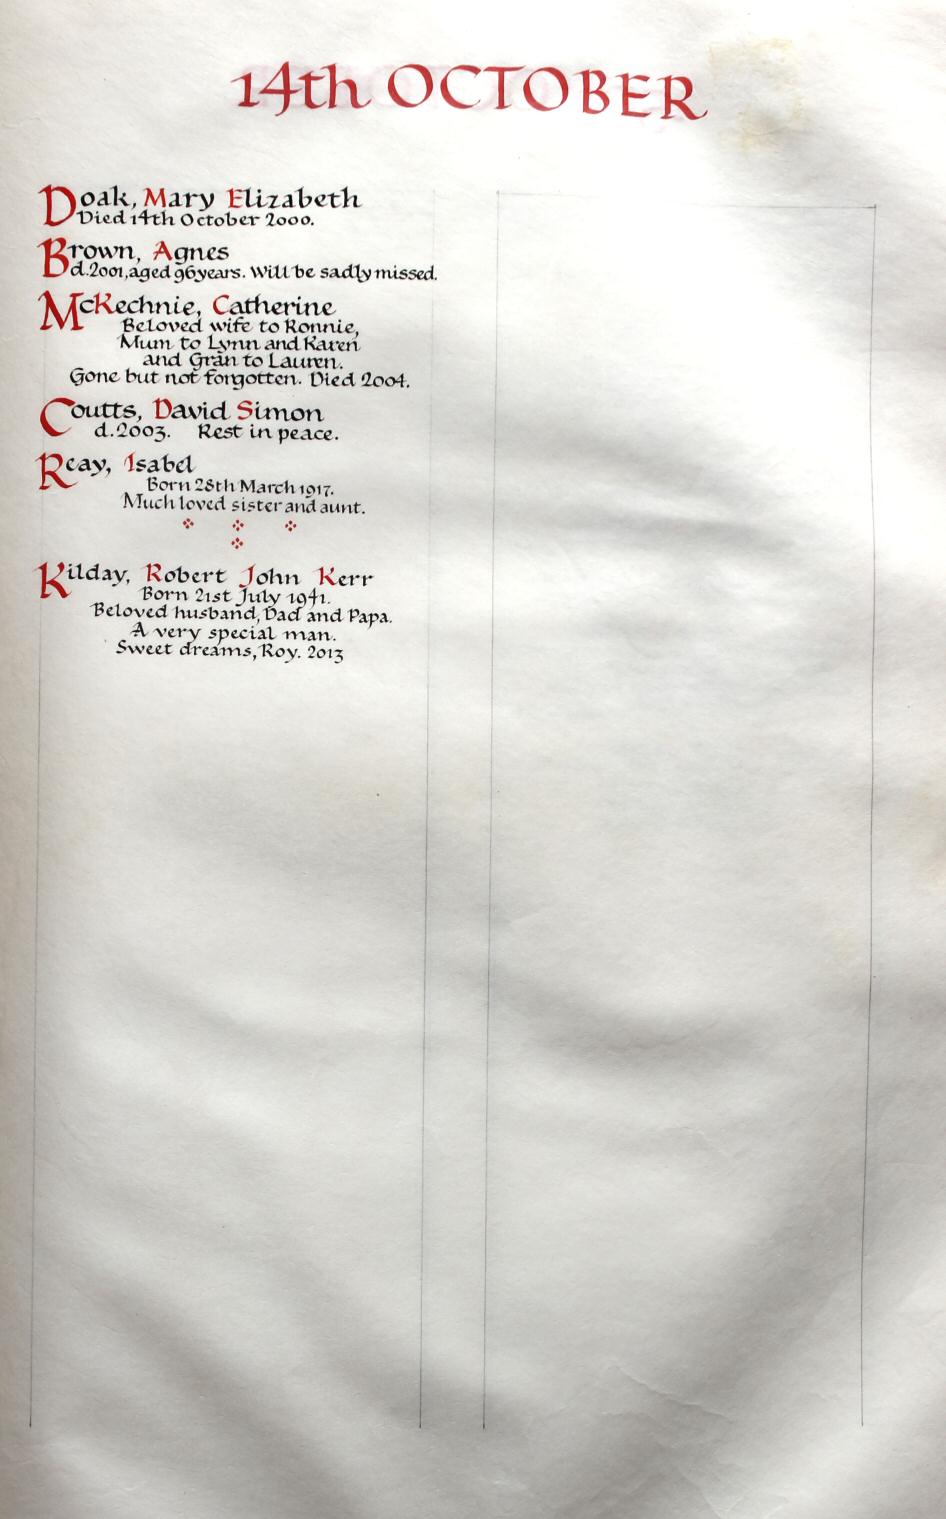 14th OCTOBER
Doak, Mary Elizabeth
Died 14th October 2000.
Brown, Agnes
d.2001, aged 96 years. Will be sadly missed.
McKechnie, Catherine
Beloved wife to Ronnie,
Mum to Lynn and Karen
and Gran to Lauren.
Gone but not forgotten. Died 2004.
Coutts, David Simon
d.2003. Rest in peace.
Reay, Isabel
Born 28th March 1917.
Much loved sister and aunt.
Kilday, Robert John Kerr
Born 21st July 1941.
Beloved husband, Dad and Papa.
A very special man.
Sweet dreams, Roy. 2013